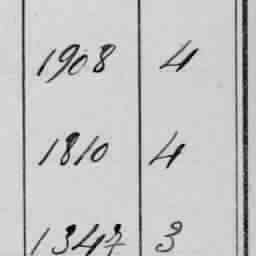 1908 4
1810 4
1347 3